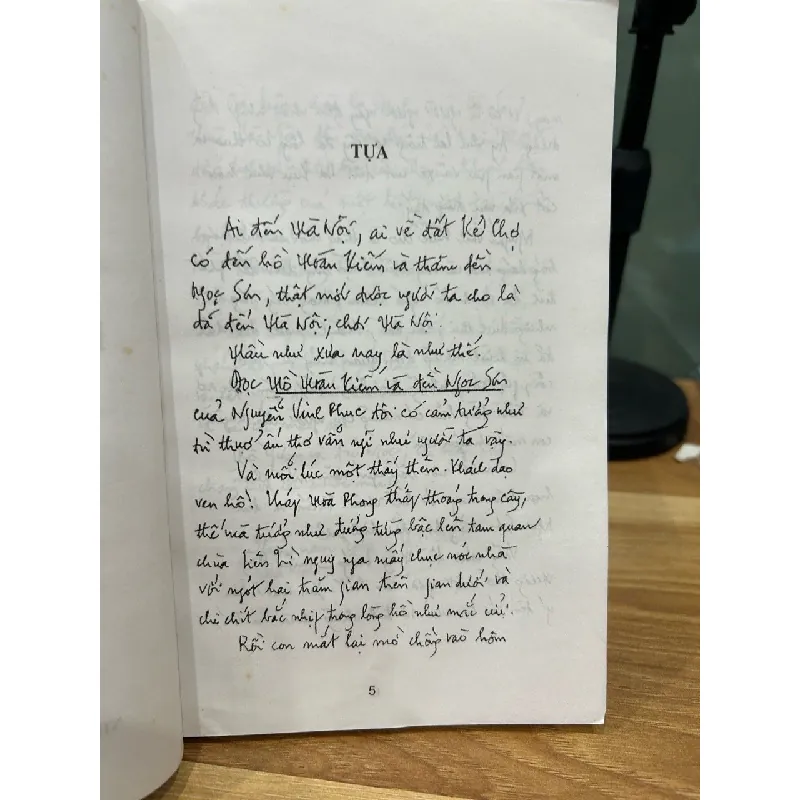 TỰA
Ai đến Hà Nội, ai về đất Kẻ Chợ
có đến hồ Hoàn Kiếm và thăm đền
Ngọc Sơn, thật mới được người ta cho là
đã đến Hà Nội, chơi Hà Nội.
Hầu như xưa nay là như thế.
Đọc Hồ Hoàn Kiếm và đền Ngọc Sơn
của Nguyễn Vinh Phúc tôi có cảm tưởng như
từ thuở ấu thơ vẫn nghĩ như người ta vậy.
Và mỗi lúc một thấy thêm. Khách dạo
ven hồ! Tháp Hoà Phong thấp thoáng trong cây,
thế mà tưởng như đương từng bậc lên tam quan
chùa Liên Trì nguy nga mấy chục nóc nhà
với ngót hai trăm gian trên gian dưới và
chi chít bắc nhịp trong lòng hồ như mắc cửi.
Rồi con mắt lại mơ chồng vào hôm
5